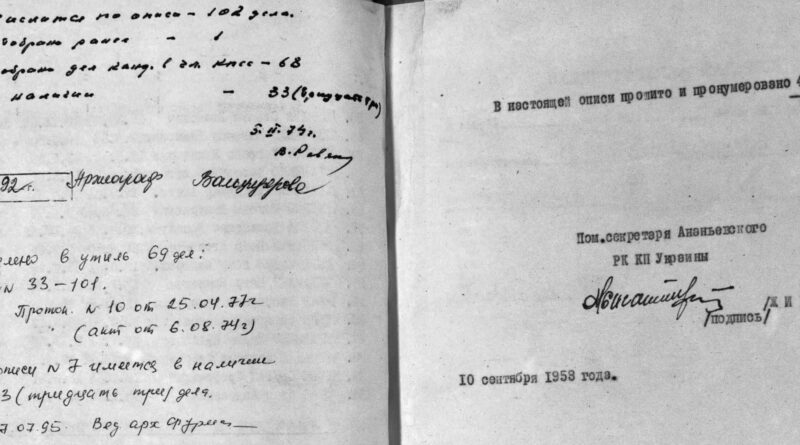 числится по описи – 102 дела.
ранее – 1
дел канд. в чл. КПСС – 68
наличии – 33 (тридцать три)
5. 74г.
92г. Археограф
в утиль 69 дел:
N 33–101.
Проток. N 10 от 25.04.77г
(акт от 6.08.74г)
описи N 7 имеется в наличии
3 (тридцать три) дела.
7.07.95. Вед арх
В настоящей описи прошито и пронумеровано 4
Пом.секретаря Ананьевского
РК КП Украины
/подпись/
10 сентября 1958 года.